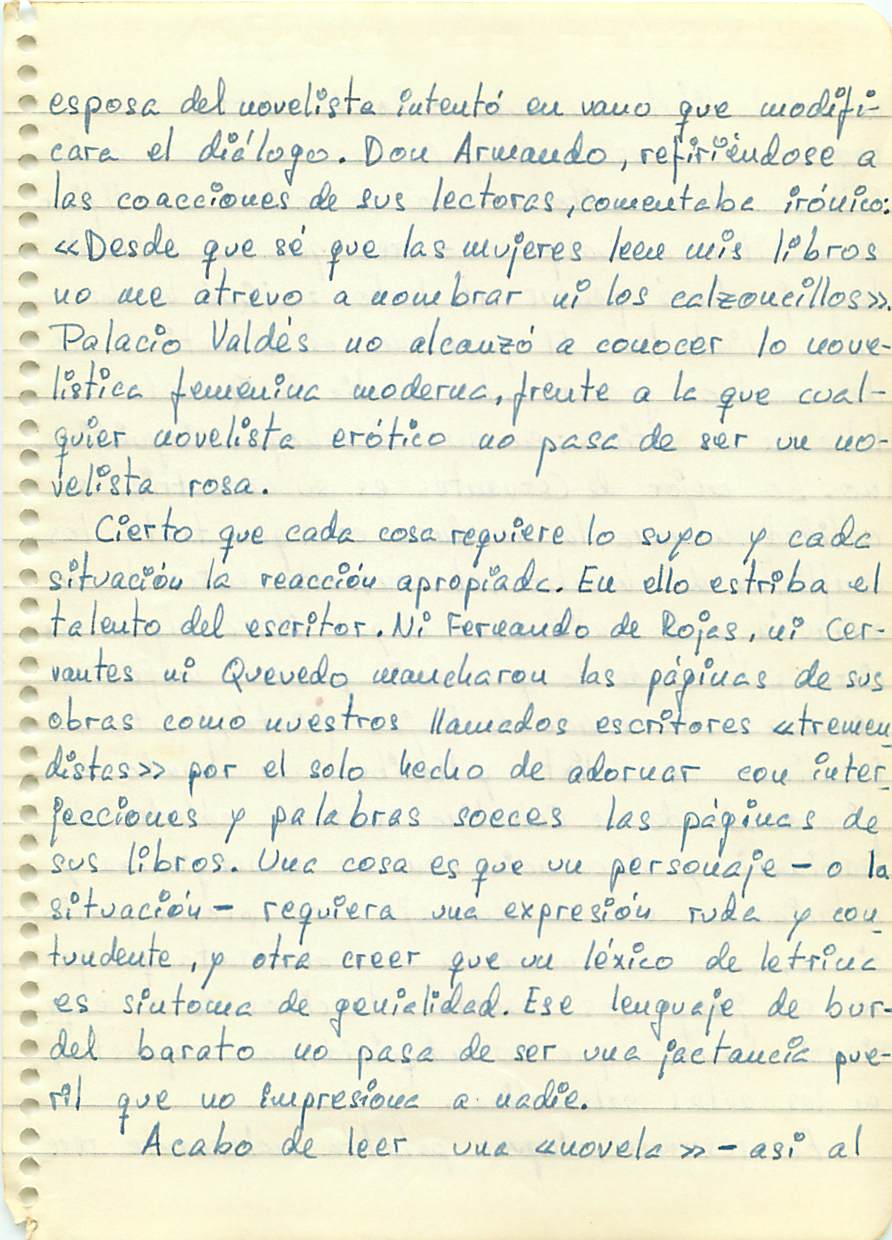 esposa del novelista intentó en vano que modifi-
cara el diálogo. Don Armando, refiriéndose a
las coacciones de sus lectoras, comentaba irónico:
«Desde que sé que las mujeres leen mis libros
no me atrevo a nombrar ni los calzoncillos».
Palacio Valdés no alcanzó a conocer lo nove-
lística femenina moderna, frente a la que cual-
quier novelista erótico no pasa de ser un no-
velista rosa.
Cierto que cada cosa requiere lo suyo y cada
situación la reacción apropiada. En ello estriba el
talento del escritor. Ni Fernando de Rojas, ni Cer-
vantes ni Quevedo mancharon las páginas de sus
obras como nuestros llamados escritores «tremen_
distas» por el solo hecho de adornar con inter_
jecciones y palabras soeces las páginas de
sus libros. Una cosa es que un personaje - o la
situación - requiera una expresión ruda y con_
tundente, y otra creer que un léxico de letrina
es síntoma de genialidad. Ese lenguaje de bur-
del barato no pasa de ser una jactancia pue-
ril que no impresiona a nadie.
Acabo de leer una «novela» - así al